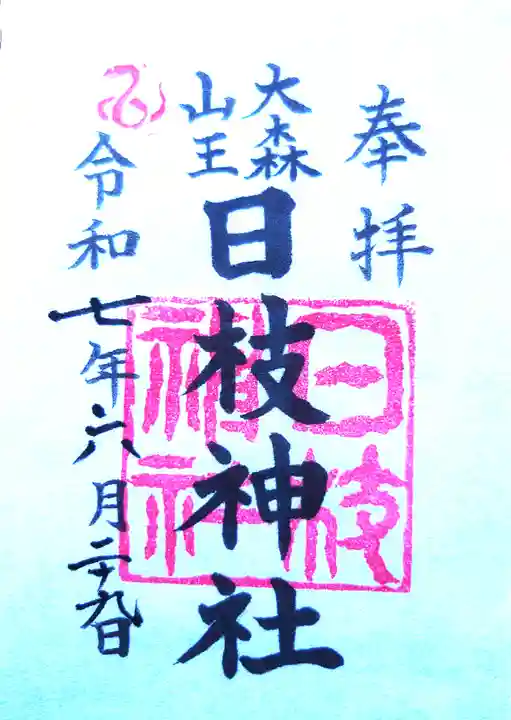 奉拝
大森
山王
日枝神社
令和七年六月二十九日
日枝
神社